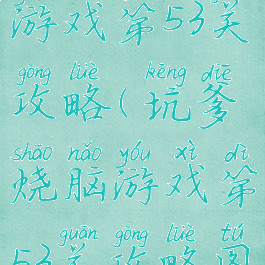 游戏第53关
gōng lüè kēng diē
攻略(坑爹
shāo nǎo yóu xì dì
烧脑游戏第
guān gōng lüè tú
53关攻略图